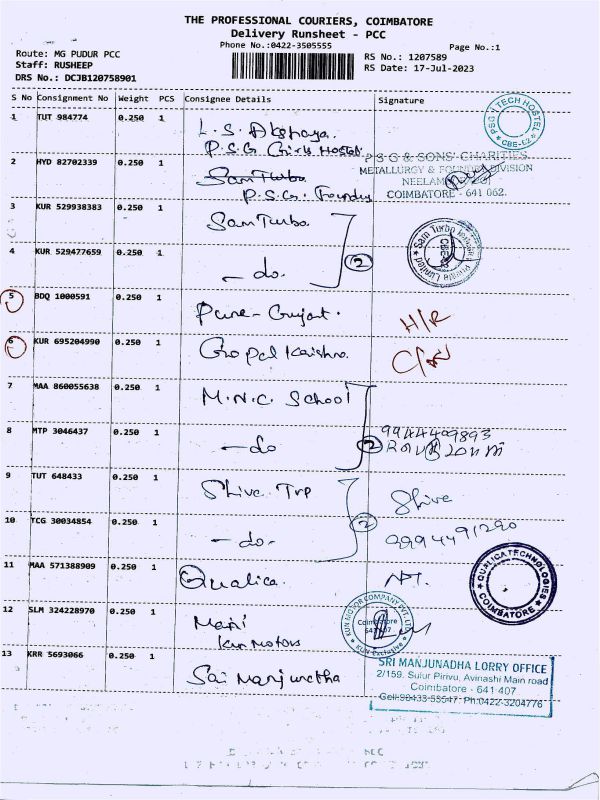 THE PROFESSIONAL COURIERS, COIMBATORE
Delivery Runsheet - PCC
Phone No.:0422-3505555
Page No.:1
Route: MG PUDUR PCC
Staff: RUSHEEP
DRS No.: DCJB120758901
RS No.: 1207589
RS Date: 17-Jul-2023
S No Consignment No Weight PCS Consignee Details Signature
1 TUT 984774 0.250 1 L.S. Akshaya.
P.S.G Girls Hostel
PSG I TECH HOSTEL
CBE-62
2 HYD 82702339 0.250 1 Sam Turbo
P.S.G. Foundry
P S G & SONS' CHARITIES
METALLURGY & FOUNDRY DIVISION
COIMBATORE - 641 062.
3 KUR 529938383 0.250 1 Sam Turbo
4 KUR 529477659 0.250 1 - do. 2
5 BDQ 1000591 0.250 1 Pure - Gujart. H/R
6 KUR 695204990 0.250 1 Gopal Krishna
7 MAA 860055638 0.250 1 M.N.C. School
8 MTP 3046437 0.250 1 - do 2
9 TUT 648433 0.250 1 Shive Trp Shive
10 TCG 30034854 0.250 1 - do. 2
11 MAA 571388909 0.250 1 Qualica.
QUALICA TECHNOLOGIES
COIMBATORE
12 SLM 324228970 0.250 1 Mani
Kun Motors
KUN MOTOR COMPANY PVT. LTD.
Coimbatore
KUN Exclusive
13 KRR 5693066 0.250 1 Sai Manjunatha
SRI MANJUNADHA LORRY OFFICE
2/159, Sulur Pirivu, Avinashi Main road
Coimbatore - 641 407
Cell:98433-58547 Ph:0422-3204776